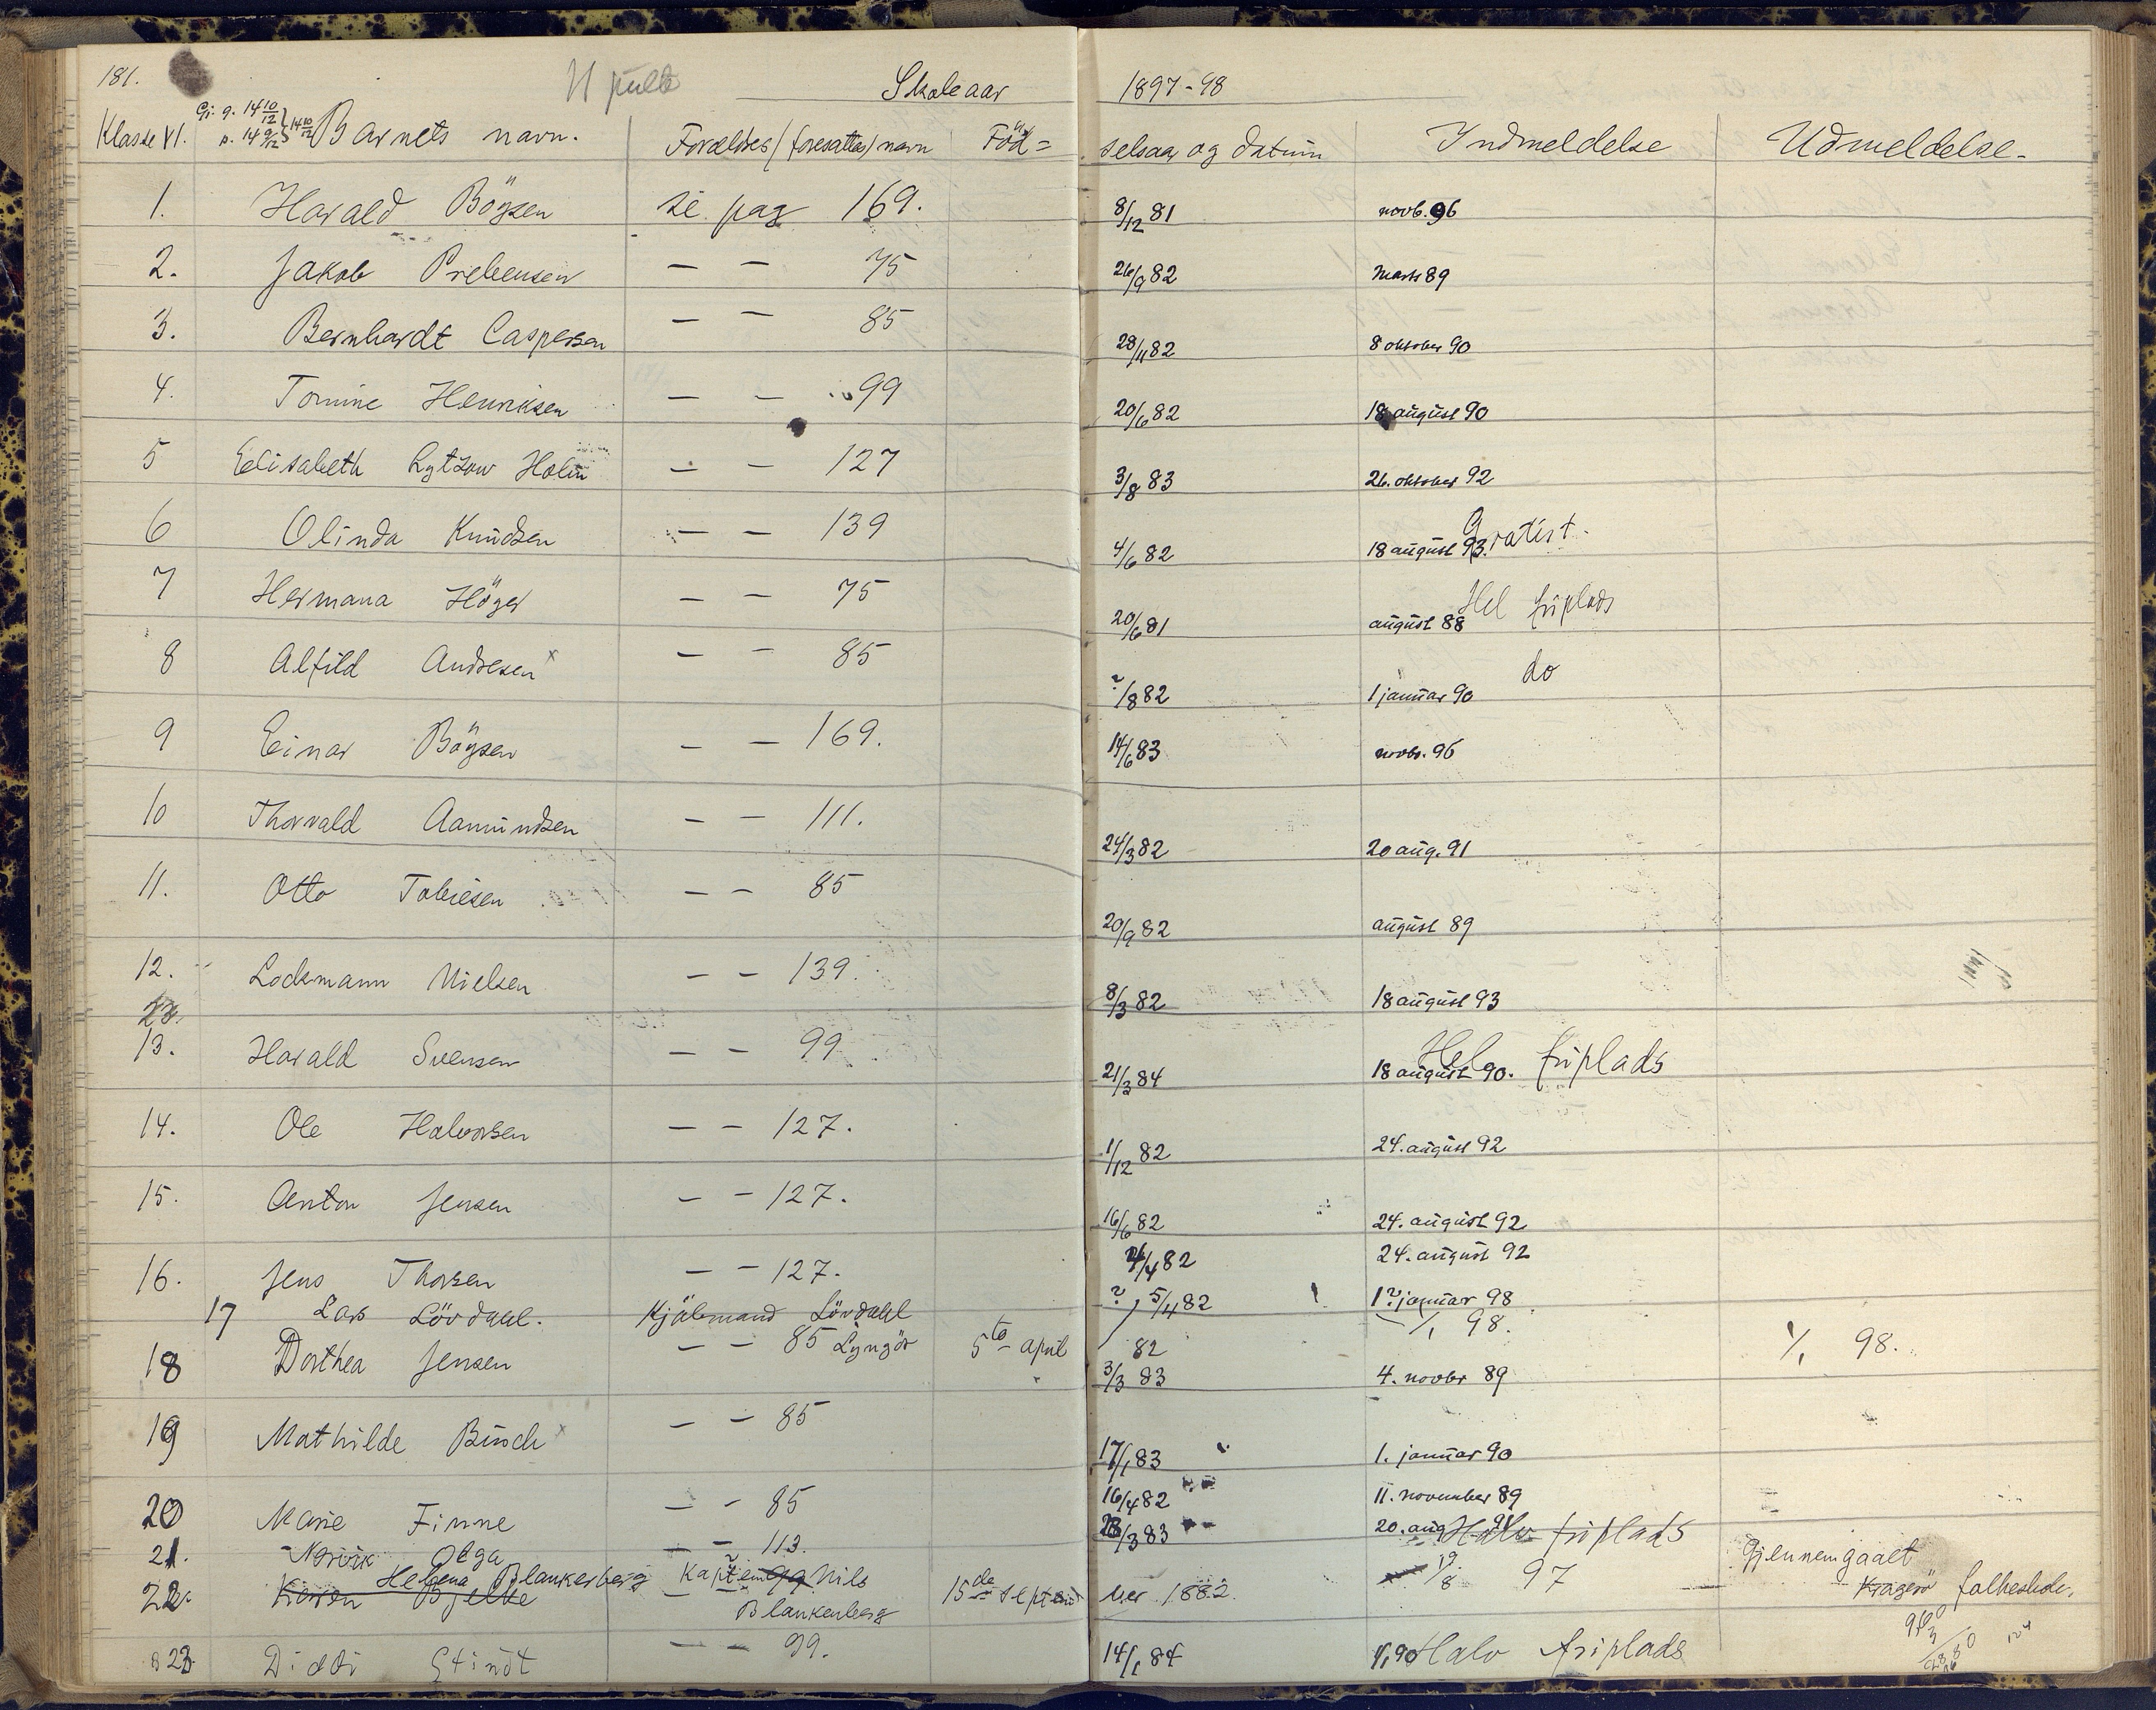 181. Skoleaar 1897-98
Klasse VI. Barnets navn. Forældres (foresattes) navn Föd= selsaar og datum Indmeldelse Udmeldelse.
1. Harald Böysen se pag 169. 8/12 81 novb. 96
2. Jakob Prebensen — — 75 26/9 82 Marts 89
3. Bernhardt Caspersen — — 85 28/11 82 8 oktober 90
4. Tomine Henriksen — — 99 20/6 82 18 august 90
5 Elisabeth Lytzow Holm — — 127 3/8 83 26. oktober 92
6 Olinda Knudsen — — 139 4/6 82 18 august 93. Gratist.
7 Hermana Höyer — — 75 20/6 81 august 88 Hel friplads
8 Alfild Andresen x — — 85 ?/8 82 1 januar 90 do
9 Einar Böysen — — 169. 14/6 83 novbr. 96
10 Thorvald Aamundsen — — 111. 24/3 82 20 aug. 91
11. Otto Tobiesen — — 85 20/9 82 august 89
12. Lodsmann Nielsen — — 139. 8/3 82 18 august 93
13. Harald Svensen — — 99 21/3 84 18 august 90. Hel friplads
14. Ole Halvorsen — — 127. 1/12 82 24. august 92
15. Anton Jensen — — 127. 16/6 82 24. august 92
16. Jens Thorsen — — 127. 4/82 24. august 92
17 Lars Lövdahl. Kjöbmand Lövdahl Lyngör 5te april 82 ? 5/4 82 1? januar 98 1/1 98. 1/1 98.
18 Dorthea Jensen — — 85 3/3 83 4. novbr 89
19 Mathilde Busch x — — 85 17/1 83 1. januar 90
20 Marie Finne — — 85 16/4 82 11. november 89
21. Nævik Olga — — 113. 28/3 83 20. aug 91 Halv friplads
22. Karen Bjelke 99
Helena Blankenberg Kaptein Nils Blankenberg 15de septem ber 1882. 19/8 97 Gjennemgaaet Kragerö folkeskole.
23. Diddi Stindt — — 99. 14/1 84 1/1 90 Halv friplads